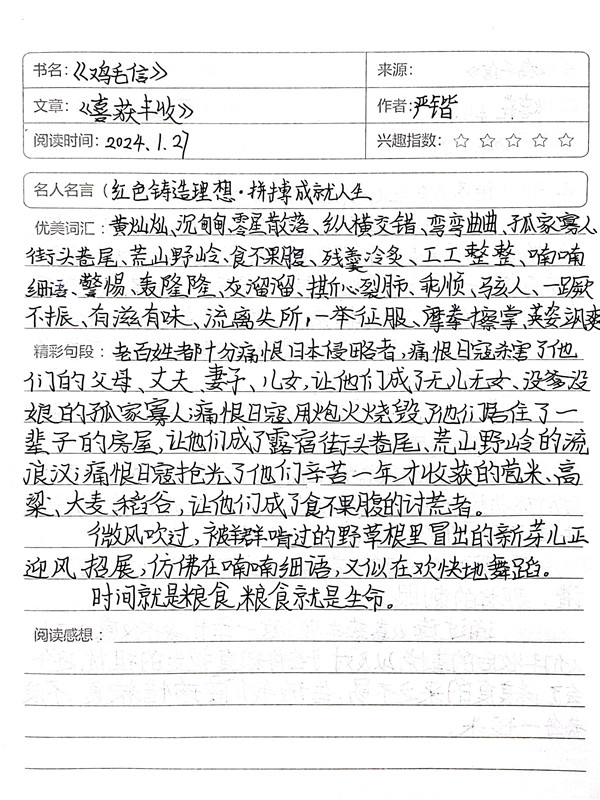 书名：《鸡毛信》 来源：
文章：《喜获丰收》 作者：严锴
阅读时间：2024.1.27 兴趣指数：☆ ☆ ☆ ☆ ☆
名人名言（红色铸造理想·拼搏成就人生
优美词汇：黄灿灿、沉甸甸、零星散落、纵横交错、弯弯曲曲、孤家寡人
街头巷尾、荒山野岭、食不果腹、残羹冷炙、工工整整、喃喃
细语、警惕、轰隆隆、灰溜溜、撕心裂肺、乖顺、骇人、一蹶
不振、有滋有味、流离失所，一举征服、摩拳擦掌、英姿飒爽
精彩句段：老百姓都十分痛恨日本侵略者，痛恨日寇杀害了他
们的父母、丈夫、妻子、儿女，让他们成了无儿无女、没爹没
娘的孤家寡人；痛恨日寇用炮火烧毁了他们居住了一
辈子的房屋，让他们成了露宿街头巷尾、荒山野岭的流
浪汉；痛恨日寇抢光了他们辛苦一年才收获的苞米、高
粱、大麦、稻谷，让他们成了食不果腹的讨荒者。
微风吹过，被羊群啃过的野草根里冒出的新芽儿正
迎风招展，仿佛在喃喃细语，又似在欢快地舞蹈。
时间就是粮食，粮食就是生命。
阅读感想：